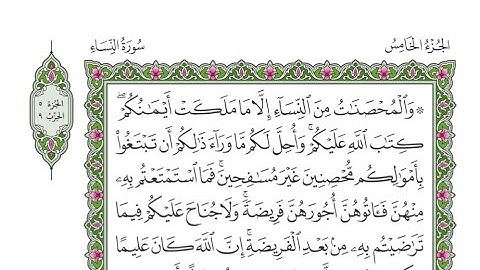 الجزء الخامس
سورة النساء
الجزء ٥
الحزب ٩
۞ وَٱلْمُحْصَنَٰتُ مِنَ ٱلنِّسَآءِ إِلَّا مَا مَلَكَتْ أَيْمَٰنُكُمْ ۖ
كِتَٰبَ ٱللَّهِ عَلَيْكُمْ ۚ وَأُحِلَّ لَكُم مَّا وَرَآءَ ذَٰلِكُمْ أَن تَبْتَغُوا۟
بِأَمْوَٰلِكُم مُّحْصِنِينَ غَيْرَ مُسَٰفِحِينَ ۚ فَمَا ٱسْتَمْتَعْتُم بِهِۦ
مِنْهُنَّ فَـَٔاتُوهُنَّ أُجُورَهُنَّ فَرِيضَةً ۚ وَلَا جُنَاحَ عَلَيْكُمْ فِيمَا
تَرَٰضَيْتُم بِهِۦ مِنۢ بَعْدِ ٱلْفَرِيضَةِ ۚ إِنَّ ٱللَّهَ كَانَ عَلِيمًا